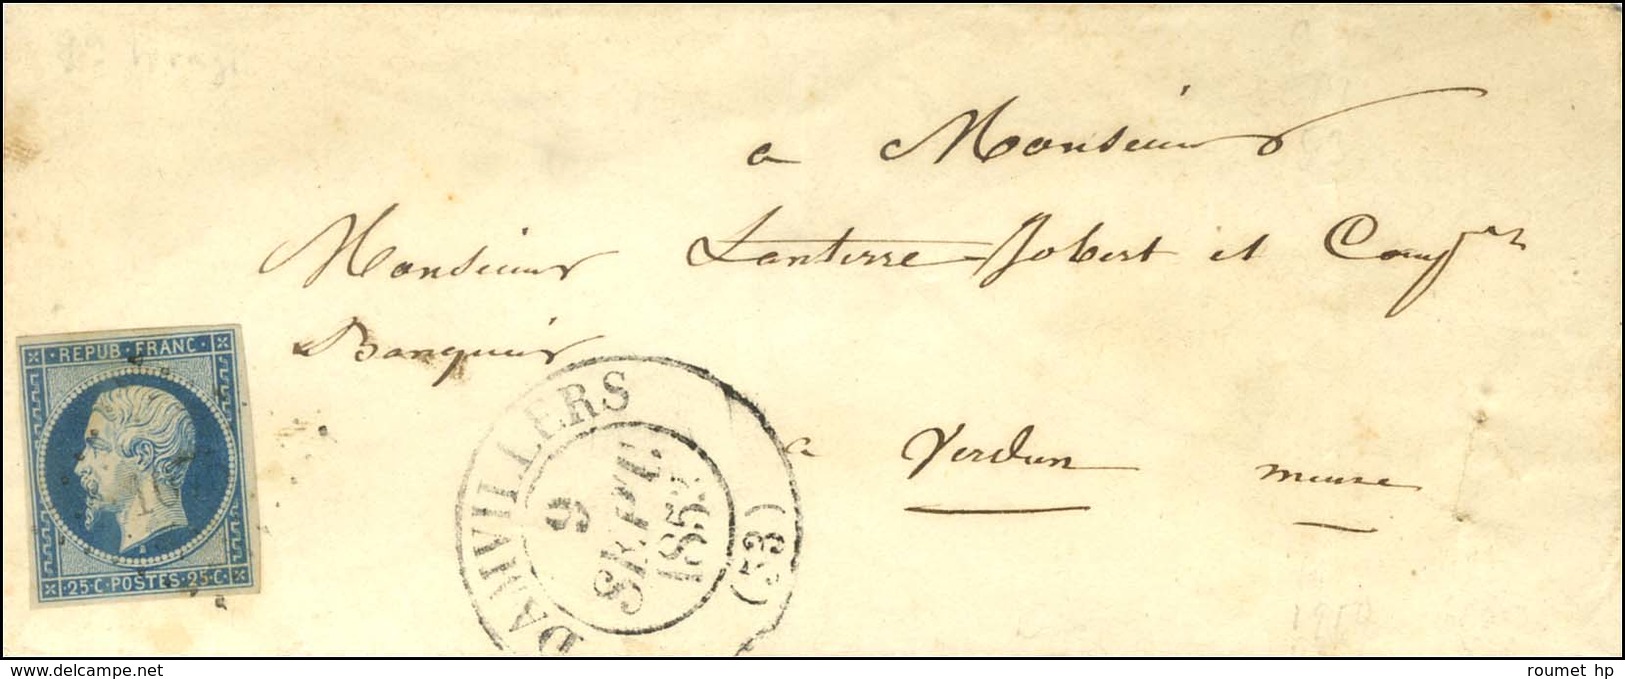 a Monsieur
Monsieur Lanterre-Jobert et Comp
Banquier
a Verdun meuse
REPUB FRANC
25·C·POSTES·25·C·
DAMVILLERS
9
SEPT.
185
(53)
roumet hp